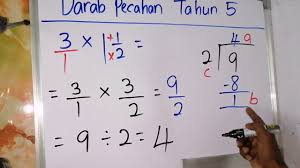 Darab Pecahan Tahun 5
3/1 × 1 + 1/× 2 =
= 3/1 × 3/2 = 9/2
= 9 ÷ 2 = 4
4 a
2 9
c
-8
1 b